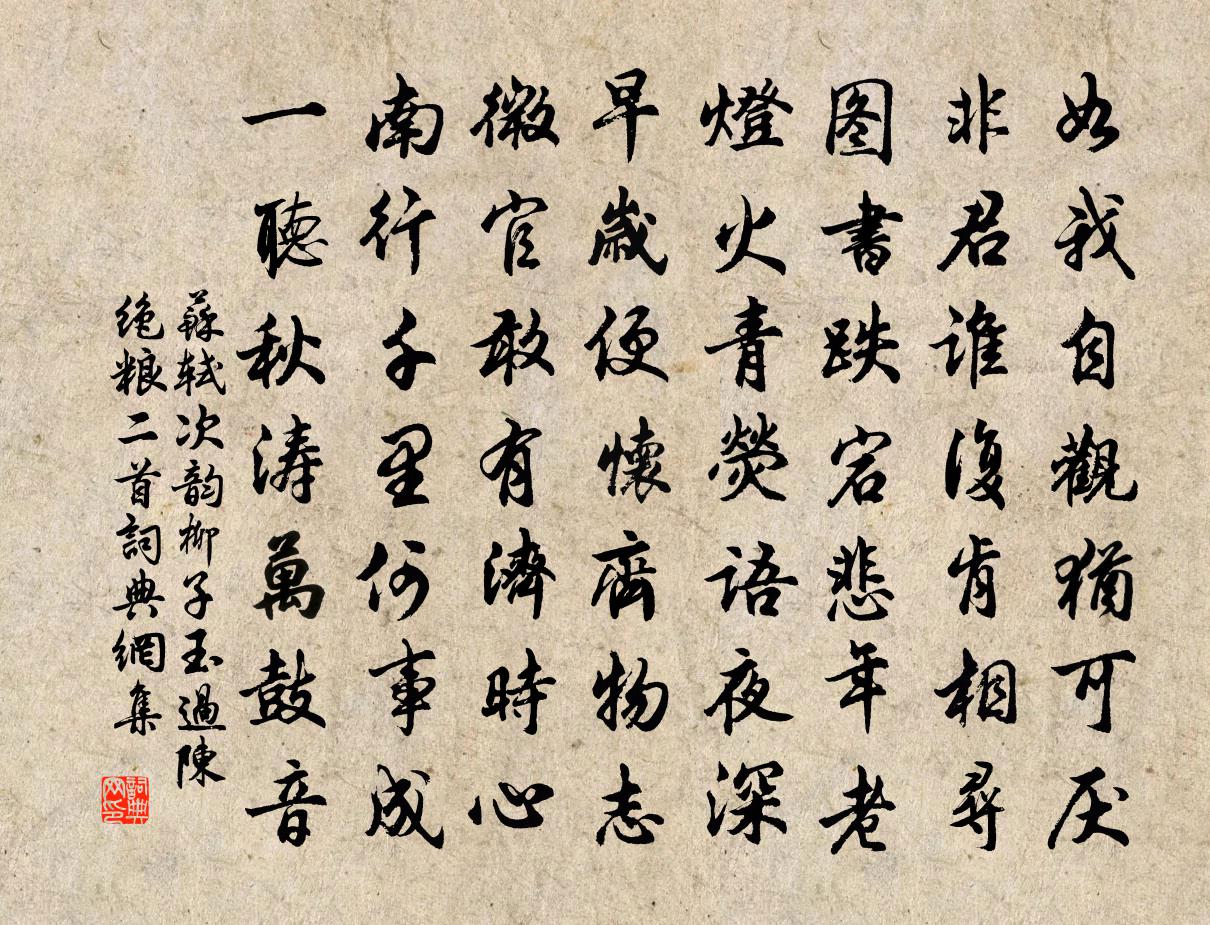 如我自觀猶可厌
非君谁復肯相尋
图書跌宕悲年老
燈火青熒語夜深
早歲便懷齊物志
微官敢有濟時心
南行千里何事成
一聽秋涛萬鼓音
蘇轼次韵柳子玉過陳
绝粮二首詞典網集
詞典
网印